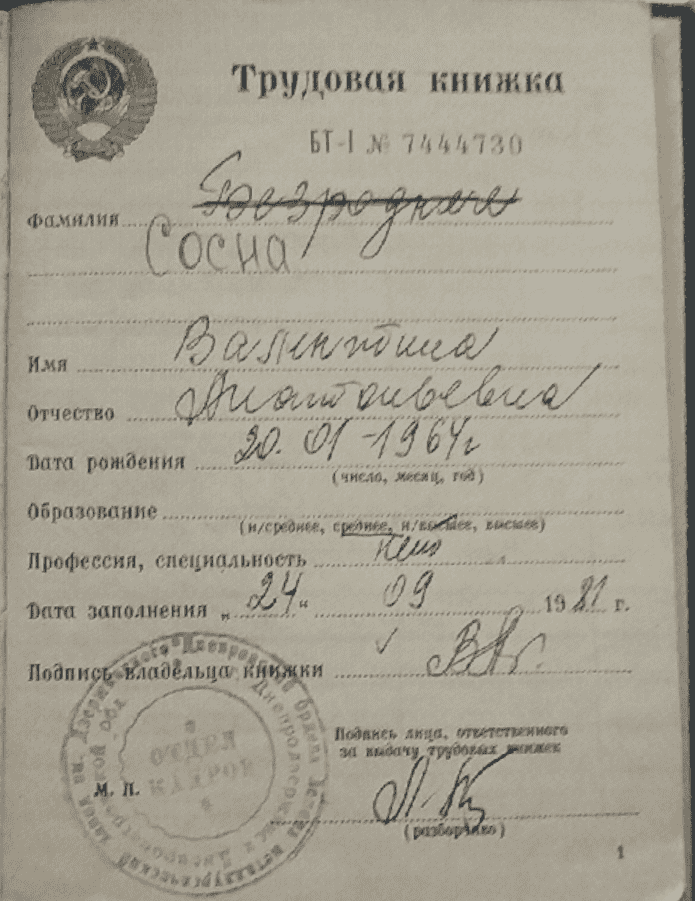 Трудовая книжка
БТ-I № 7444730
Фамилия Безродная
Сосна
Имя Валентина
Отчество Анатольевна
Дата рождения 20.01-1964г
(число, месяц, год)
Образование
(н/среднее, среднее, н/высшее, высшее)
Профессия, специальность нет
Дата заполнения „24“ 09 1981 г.
Подпись владельца книжки
Подпись лица, ответственного
за выдачу трудовых книжек
М. П.
ОТДЕЛ
КАДРОВ
(разборчиво)
1